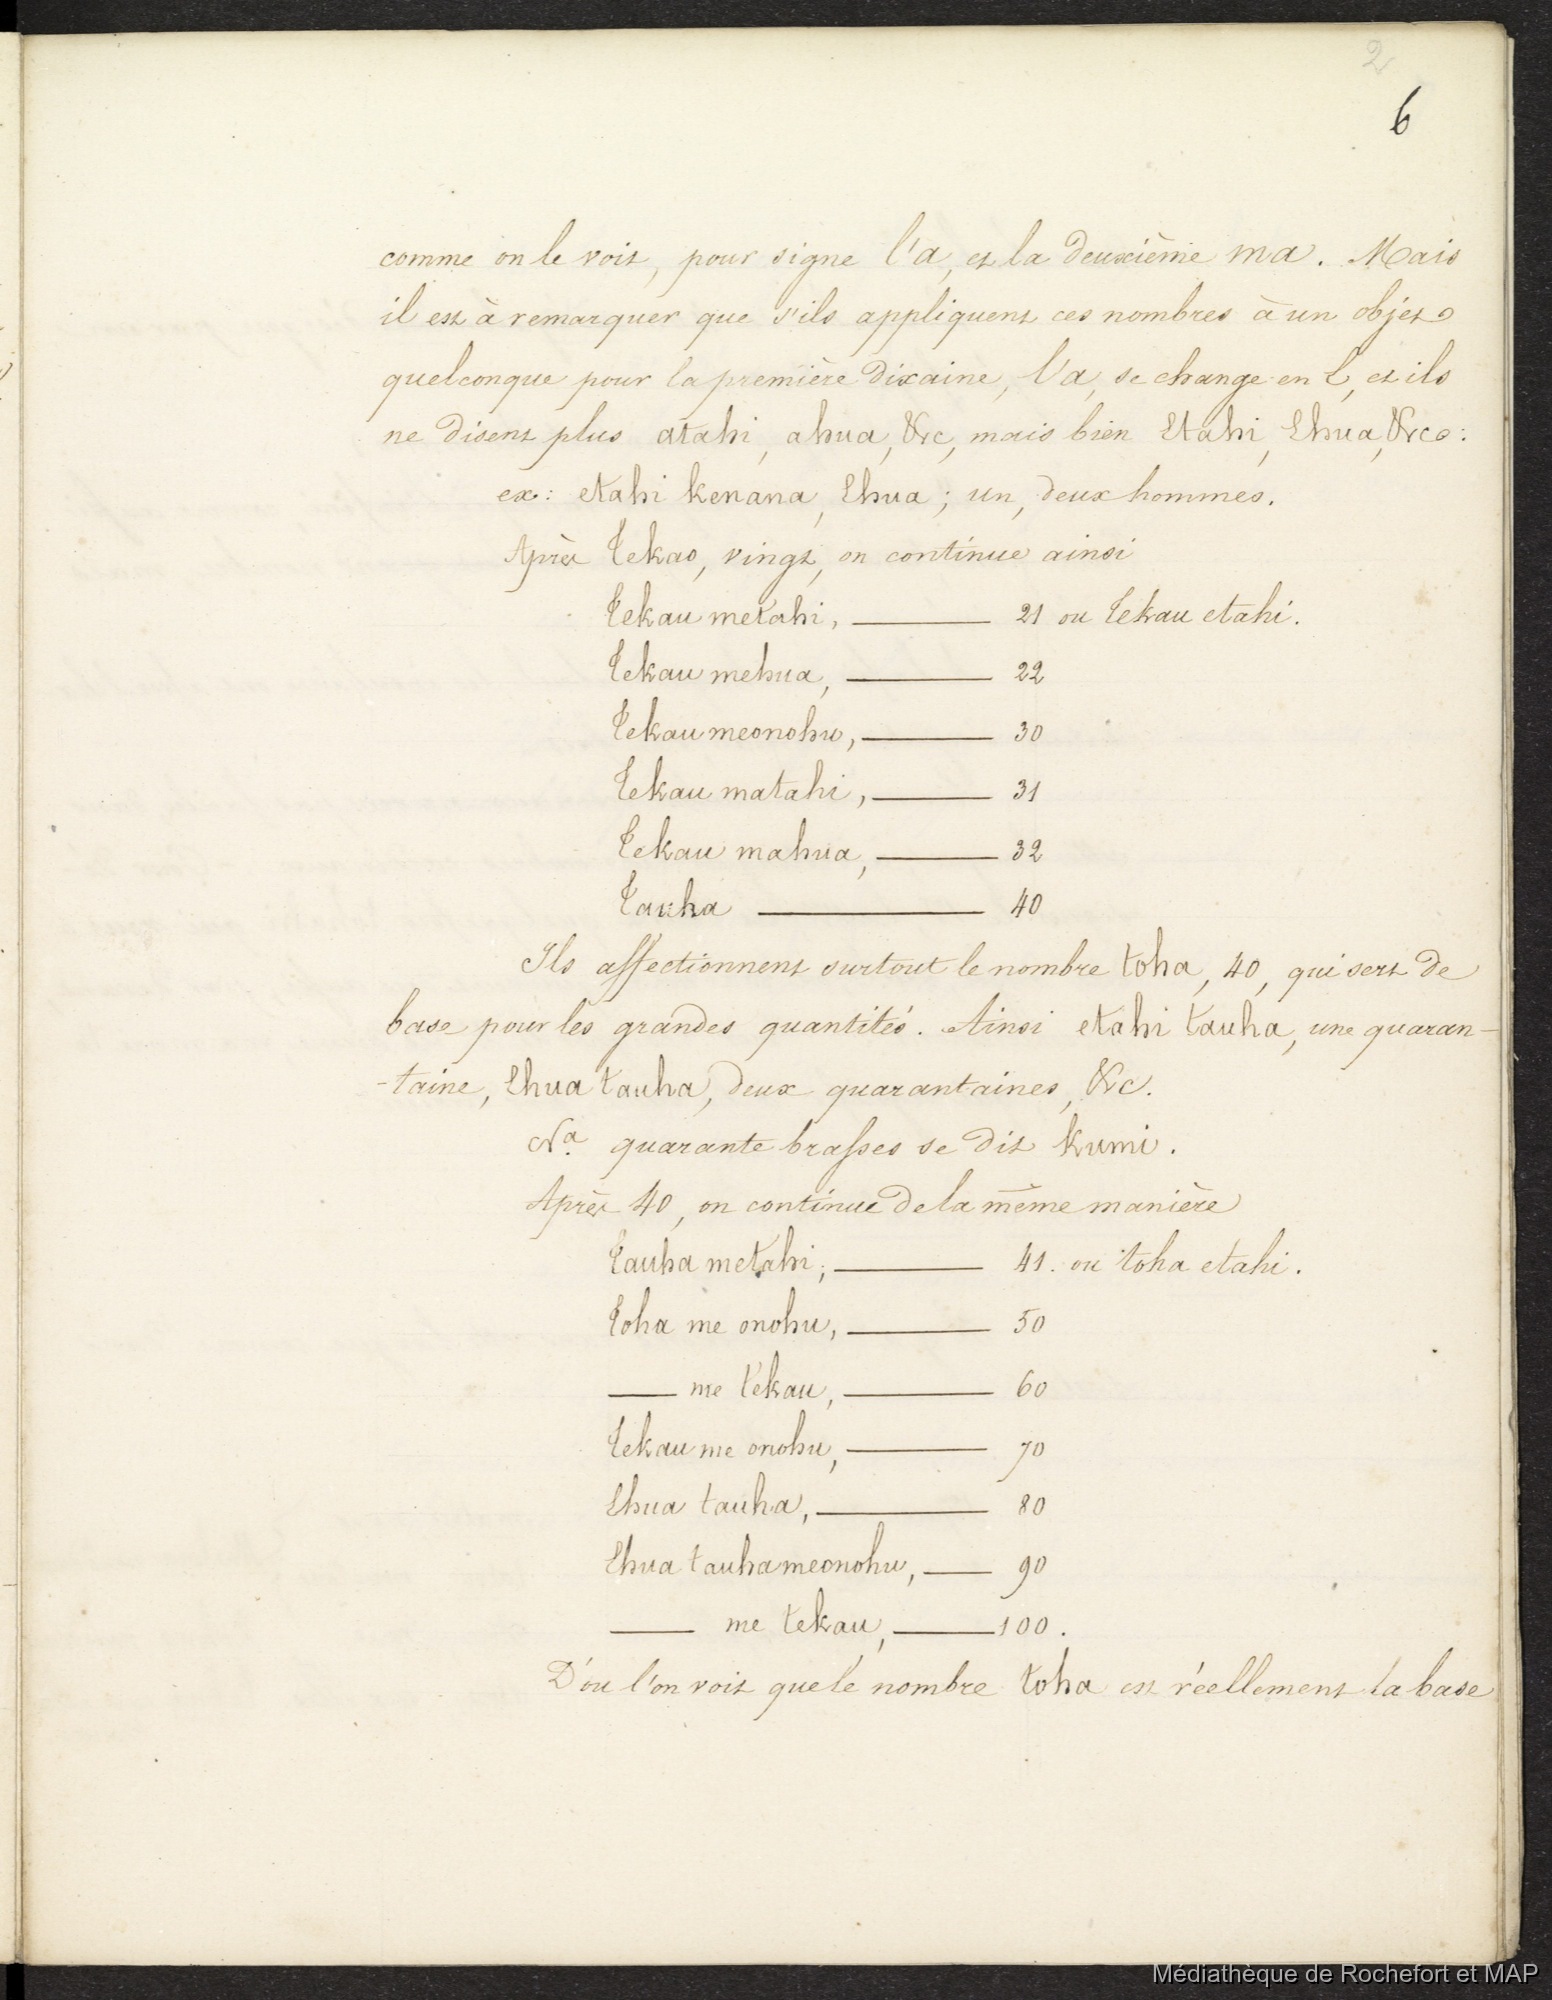 2
6
comme on le voit, pour signe l'a, et la deuxième ma. Mais
il est à remarquer que s'ils appliquent ces nombres à un objet
quelconque pour la première dixaine, l'a, se change en E, et ils
ne disent plus atahi, ahua, &c, mais bien Etahi, Ehua, &c:
ex: etahi kenana, Ehua; un, deux hommes.
Après Tekao, vingt, on continue ainsi
Tekau metahi, — 21 ou Tekau etahi.
Tekau mehua, — 22
Tekau meonohu, — 30
Tekau matahi, — 31
Tekau mahua, — 32
Tauha — 40
Ils affectionnent surtout le nombre toha, 40, qui sert de
base pour les grandes quantités. Ainsi etahi tauha, une quaran-
-taine, Ehua tauha, deux quarantaines, &c.
Na. quarante brasses se dit kumi.
Après 40, on continue de la même manière
Tauha metahi; — 41. ou toha etahi.
Toha me onohu, — 50
— me tekau, — 60
Tekau me onohu, — 70
Ehua tauha, — 80
Ehua tauha meonohu, — 90
— me tekau, — 100.
D'ou l'on voit que le nombre toha est réellement la base
Médiathèque de Rochefort et MAP